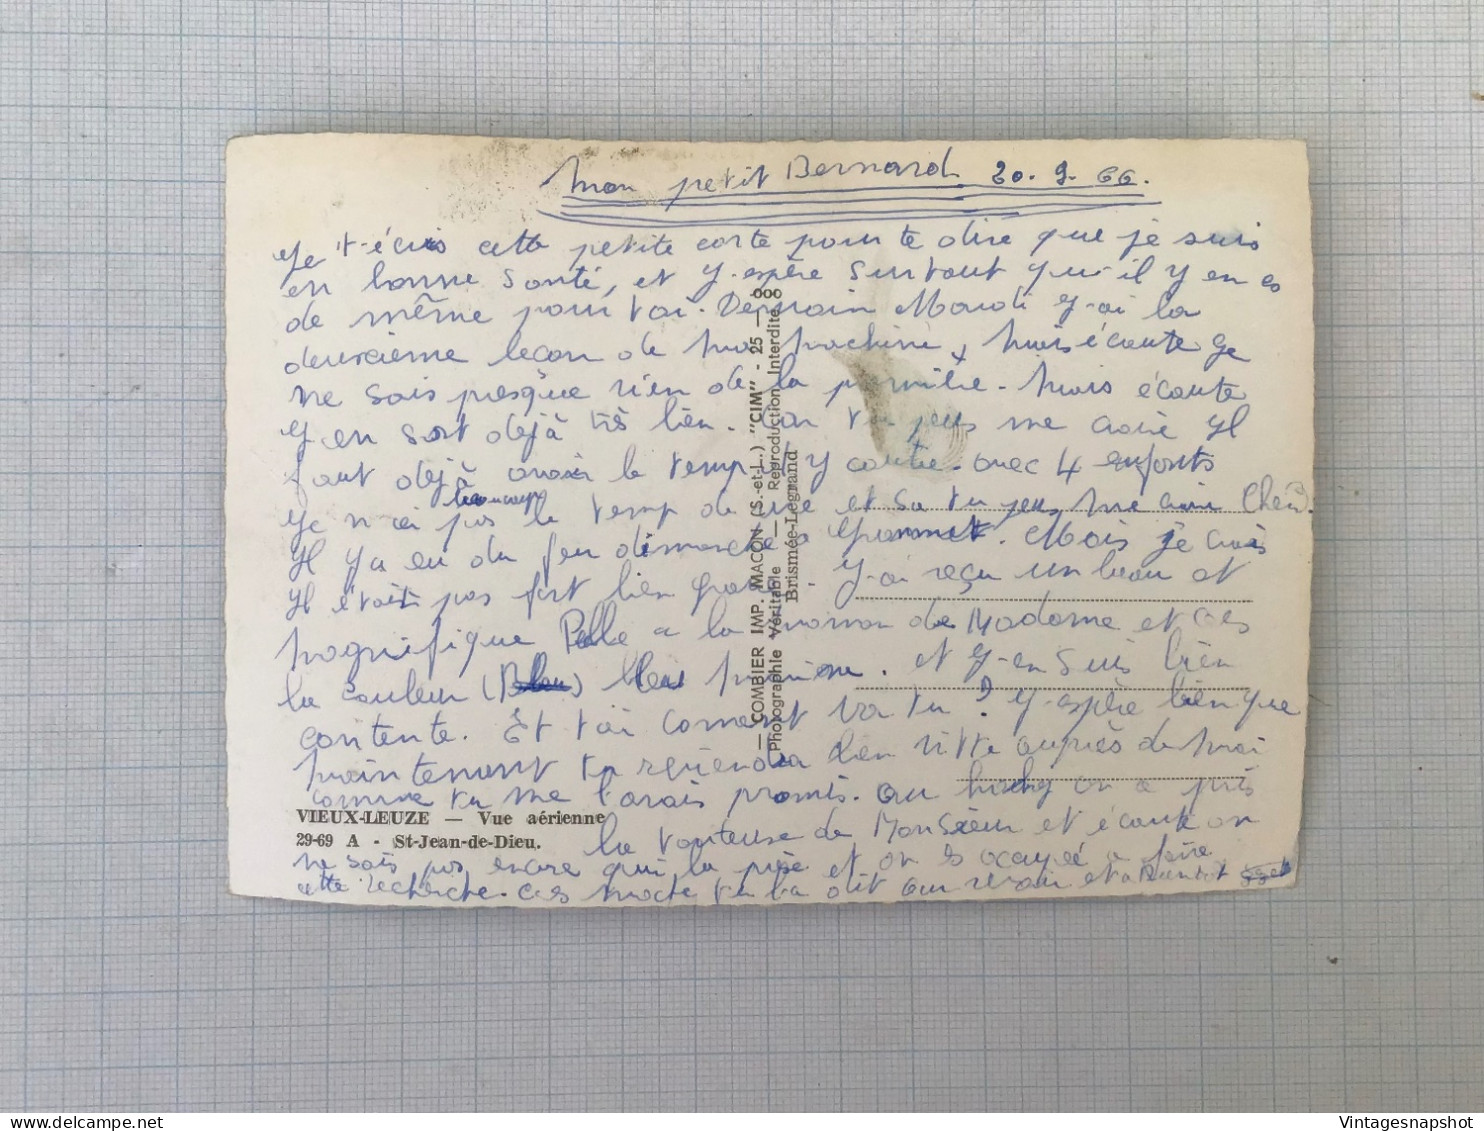 Mon petit Bernard 20.9.66.
Je t-écris cette petite carte pour te dire que je suis
en bonne santé, et y-espère surtout qu-il y en es
de même pour toi. Demain Mardi y-ai la
deuxième leçon de ma machine, mais écoute je
ne sais presque rien de la première. Mais écoute
y en sort déjà très bien. Car tu peus me croire yl
faut déjà avoir le temp. avec 4 enfants
je n ai pas beaucoup le temp de et sa tu peus me croire Chéri.
yl y a eu du feu dimanche a . Mais je crois
yl était pas fort bien . y-ai reçu un beau et
magnifique a la de Madame et
la couleur . et y-en suis bien
contente. Et toi coment va tu ? y-espère bien que
maintenant tu reviendra bien vitte auprès de moi
comme tu me l'avais promis. on a pris
la de Monsieur et écoute on
ne sais pas encore qui la et on s ocupé a faire
cette recherche. tu la dit au revoir et a Bientôt
— COMBIER IMP. MACON (S.-et-L.) "CIM" - 25 — 000
Photographie Véritable — Reproduction Interdite
Brismée-Legrand
VIEUX-LEUZE — Vue aérienne
29-69 A - St-Jean-de-Dieu.
www.delcampe.net
Vintagesnapshot